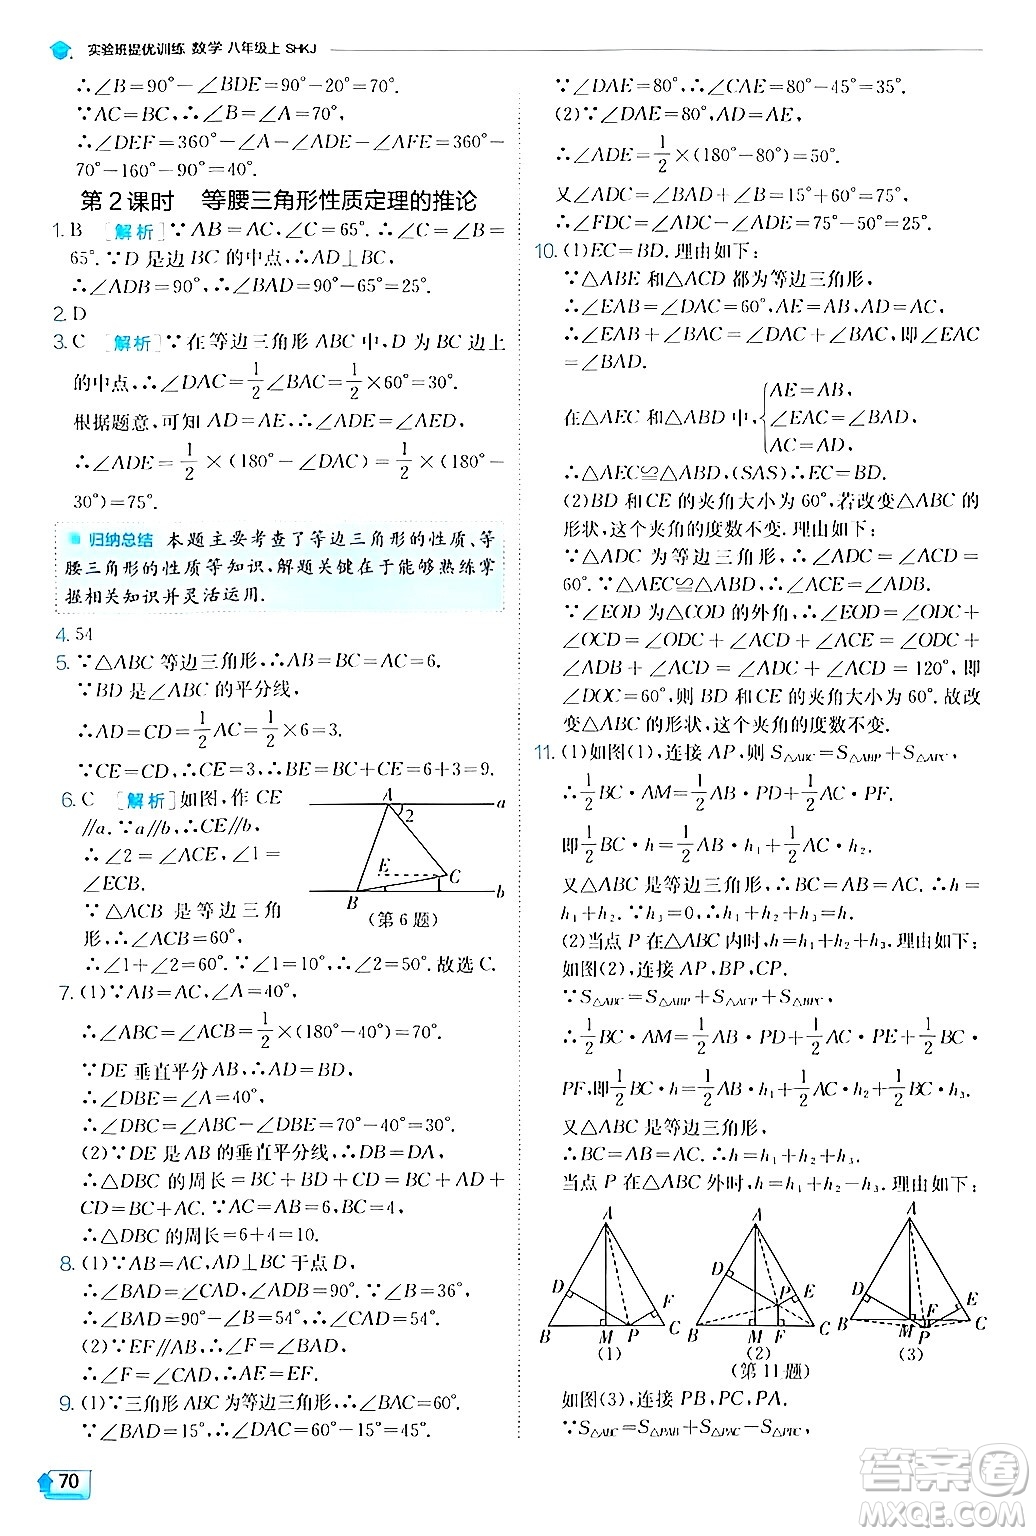 实验班提优训练 数学 八年级上 SHKJ
∴∠B=90°-∠BDE=90°-20°=70°.
∵AC=BC,∴∠B=∠A=70°.
∴∠DEF=360°-∠A-∠ADE-∠AFE=360°-
70°-160°-90°=40°.
第2课时 等腰三角形性质定理的推论
1. B [解析]∵AB=AC,∠C=65°.∴∠C=∠B=
65°.∵D是边BC的中点,∴AD⊥BC,
∴∠ADB=90°,∴∠BAD=90°-65°=25°.
2. D
3. C [解析]∵在等边三角形ABC中,D为BC边上
的中点,∴∠DAC=1/2∠BAC=1/2×60°=30°.
根据题意,可知AD=AE,∴∠ADE=∠AED,
∴∠ADE=1/2×(180°-∠DAC)=1/2×(180°-
30°)=75°.
归纳总结 本题主要考查了等边三角形的性质、等
腰三角形的性质等知识,解题关键在于能够熟练掌
握相关知识并灵活运用.
4. 54
5. ∵△ABC等边三角形,∴BC=AC=6.
∵BD是∠ABC的平分线,
∴AD=CD=1/2AC=1/2×6=3.
∵CE=CD,∴BE=BC+CE=6+3=9.
6. C [解析]如图,作CE
∥a.∵a∥b,∴CE∥b,
∴∠2=∠ACE,∠1=
∠ECB.
∵△ACB是等边三角
形,∴∠ACB=60°,
A
2
a
E
C
B
b
(第6题)
∴∠1+∠2=60°.∴∠2=50°.故选C.
7. (1)∵AB=AC,∠A=40°,
∴∠ABC=∠ACB=1/2×(180°-40°)=70°.
∵DE垂直平分AB,∴DA=DB,
∴∠DBE=∠A=40°,
∴∠DBC=∠ABC-∠DBE=70°-40°=30°.
(2)∵DE是AB的垂直平分线,∴DB=DA,
∴△DBC的周长=BC+BD+CD=BC+AD+
CD=BC+AC.∵AC=AB=6,BC=4,
∴△DBC的周长=6+4=10.
8. (1)∵AB=AC,AD⊥BC于点D,
∴∠BAD=∠CAD,∠ADB=90°.∵∠B=36°,
∴∠BAD=90°-∠B=54°,∴∠CAD=54°.
(2)∵EF∥AB,∴∠F=∠BAD,
∴∠F=∠CAD,∴AE=EF.
9. (1)∵三角形ABC为等边三角形,∴∠BAC=60°.
∵∠BAD=15°,∴∠DAC=60°-15°=45°.
∵∠DAE=80°,∴∠CAE=80°-45°=35°.
(2)∵∠DAE=80°,AD=AE,
∴∠ADE=1/2×(180°-80°)=50°.
又∠ADC=∠BAD+∠B=15°+60°=75°,
∴∠FDC=∠ADC-∠ADE=75°-50°=25°.
10. (1)EC=BD.理由如下:
∵△ABE和△ACD都为等边三角形,
∴∠EAB=∠DAC=60°,AE=AB,AD=AC,
∴∠EAB+∠BAC=∠DAC+∠BAC,即∠EAC
=∠BAD.
在△AEC和△ABD中,{AE=AB,
∠EAC=∠BAD,
AC=AD,
∴△AEC≌△ABD,(SAS)∴EC=BD.
(2)BD和CE的夹角大小为60°,若改变△ABC的
形状,这个夹角的度数不变.理由如下:
∵△ADC为等边三角形,∴∠ADC=∠ACD=
60°.∵△AEC≌△ABD,∴∠ACE=∠ADB.
∵∠EOD为△COD的外角,∴∠EOD=∠ODC+
∠OCD=∠ODC+∠ACD+∠ACE=∠ODC+
∠ADB+∠ACD=∠ADC+∠ACD=120°,即
∠DOC=60°,则BD和CE的夹角大小为60°.故改
变△ABC的形状,这个夹角的度数不变.
11. (1)如图(1),连接AP,则S△ABC=S△ABP+S△APC,
∴1/2BC·AM=1/2AB·PD+1/2AC·PF.
即1/2BC·h=1/2AB·h₁+1/2AC·h₂.
又△ABC是等边三角形,∴BC=AB=AC.∴h=
h₁+h₂.∵h₃=0,∴h₁+h₂+h₃=h.
(2)当点P在△ABC内时,h=h₁+h₂+h₃.理由如下:
如图(2),连接AP,BP,CP.
∵S△ABC=S△ABP+S△ACP+S△BPC,
∴1/2BC·AM=1/2AB·PD+1/2AC·PE+1/2BC·
PF,即1/2BC·h=1/2AB·h₁+1/2AC·h₂+1/2BC·h₃.
又△ABC是等边三角形,
∴BC=AB=AC.∴h=h₁+h₂+h₃.
当点P在△ABC外时,h=h₁+h₂-h₃.理由如下:
A
D
F
B
M
P
C
(1)
A
D
P
E
B
M
F
C
(2)
(第11题)
A
D
E
F
B
M
P
C
(3)
如图(3),连接PB,PC,PA.
∵S△ABC=S△PAB+S△PAC-S△PBC,
70
答案圈
MXQE.COM